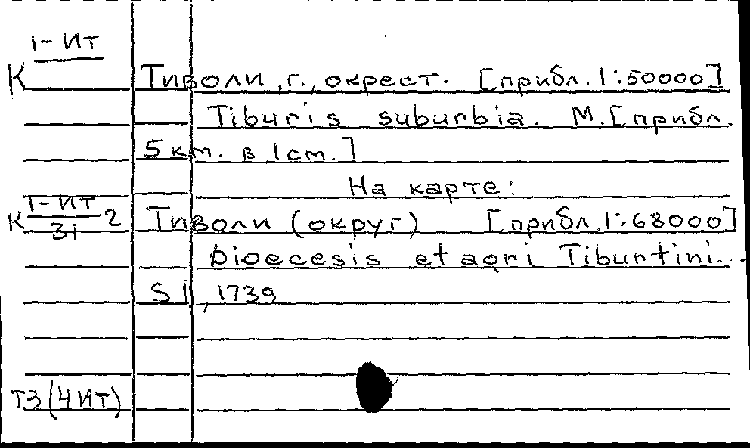 1-Ит
К Тиволи, г., окрест. [прибл. 1:50000]
Tiburis suburbia. М.[прибл.
5 km. в 1cm.]
На карте:
К 1-Ит/31 2 Тиволи (округ) [прибл. 1:68000]
Dioecesis et agri Tiburtini...
S l, 1739
Т3(4Ит)